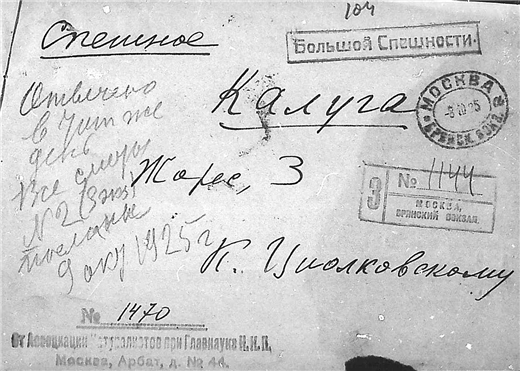 104
Спешное
Большой Спешности.
Отвечено
в тот же
день
Все
N 2 (3 экз)
посланы
9 окт 1925 г
Калуга
МОСКВА
БРЯНСК. ВОКЗ.
Жорес, 3
3 № 1144
МОСКВА,
БРЯНСКИЙ ВОКЗАЛ.
К. Циолковскому
№ 1470
От Ассоциации Натуралистов при Главнауке Н.К.П.
Москва, Арбат, д. № 44.